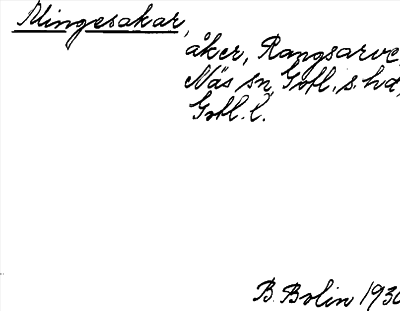 Mingesakar,
åker, Rangsarve,
Näs sn, Gotl. s. hd,
Gotl. l.
B. Bolin 1930